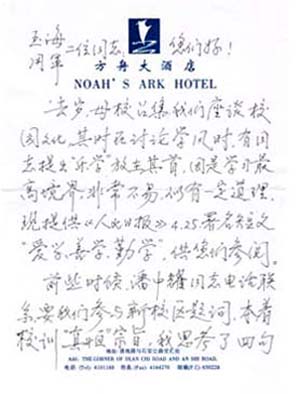 玉海
周军 二位同志, 您们好!
方舟大酒店
NOAH'S ARK HOTEL
去岁,母校召集我们座谈校
园文化,其时在讨论学风时,有同
志提出"乐学"放在其首,因是学习最
高境界,非常不易,似有一定道理,
现提供《人民日报》4.25.署名短文
"爱学、善学、勤学",供您们参阅。
前些时候,潘中 同志电话联
系,要我们参与新校区题词,本着
校训"真 "宗旨,我思考了四句
ADD: THE CORNER OF HUAN CHI ROAD AND AN SHI ROAD.
电话 (Tel): 6101188 传真 (Fax): 6164270 邮编 (P.C): 650228